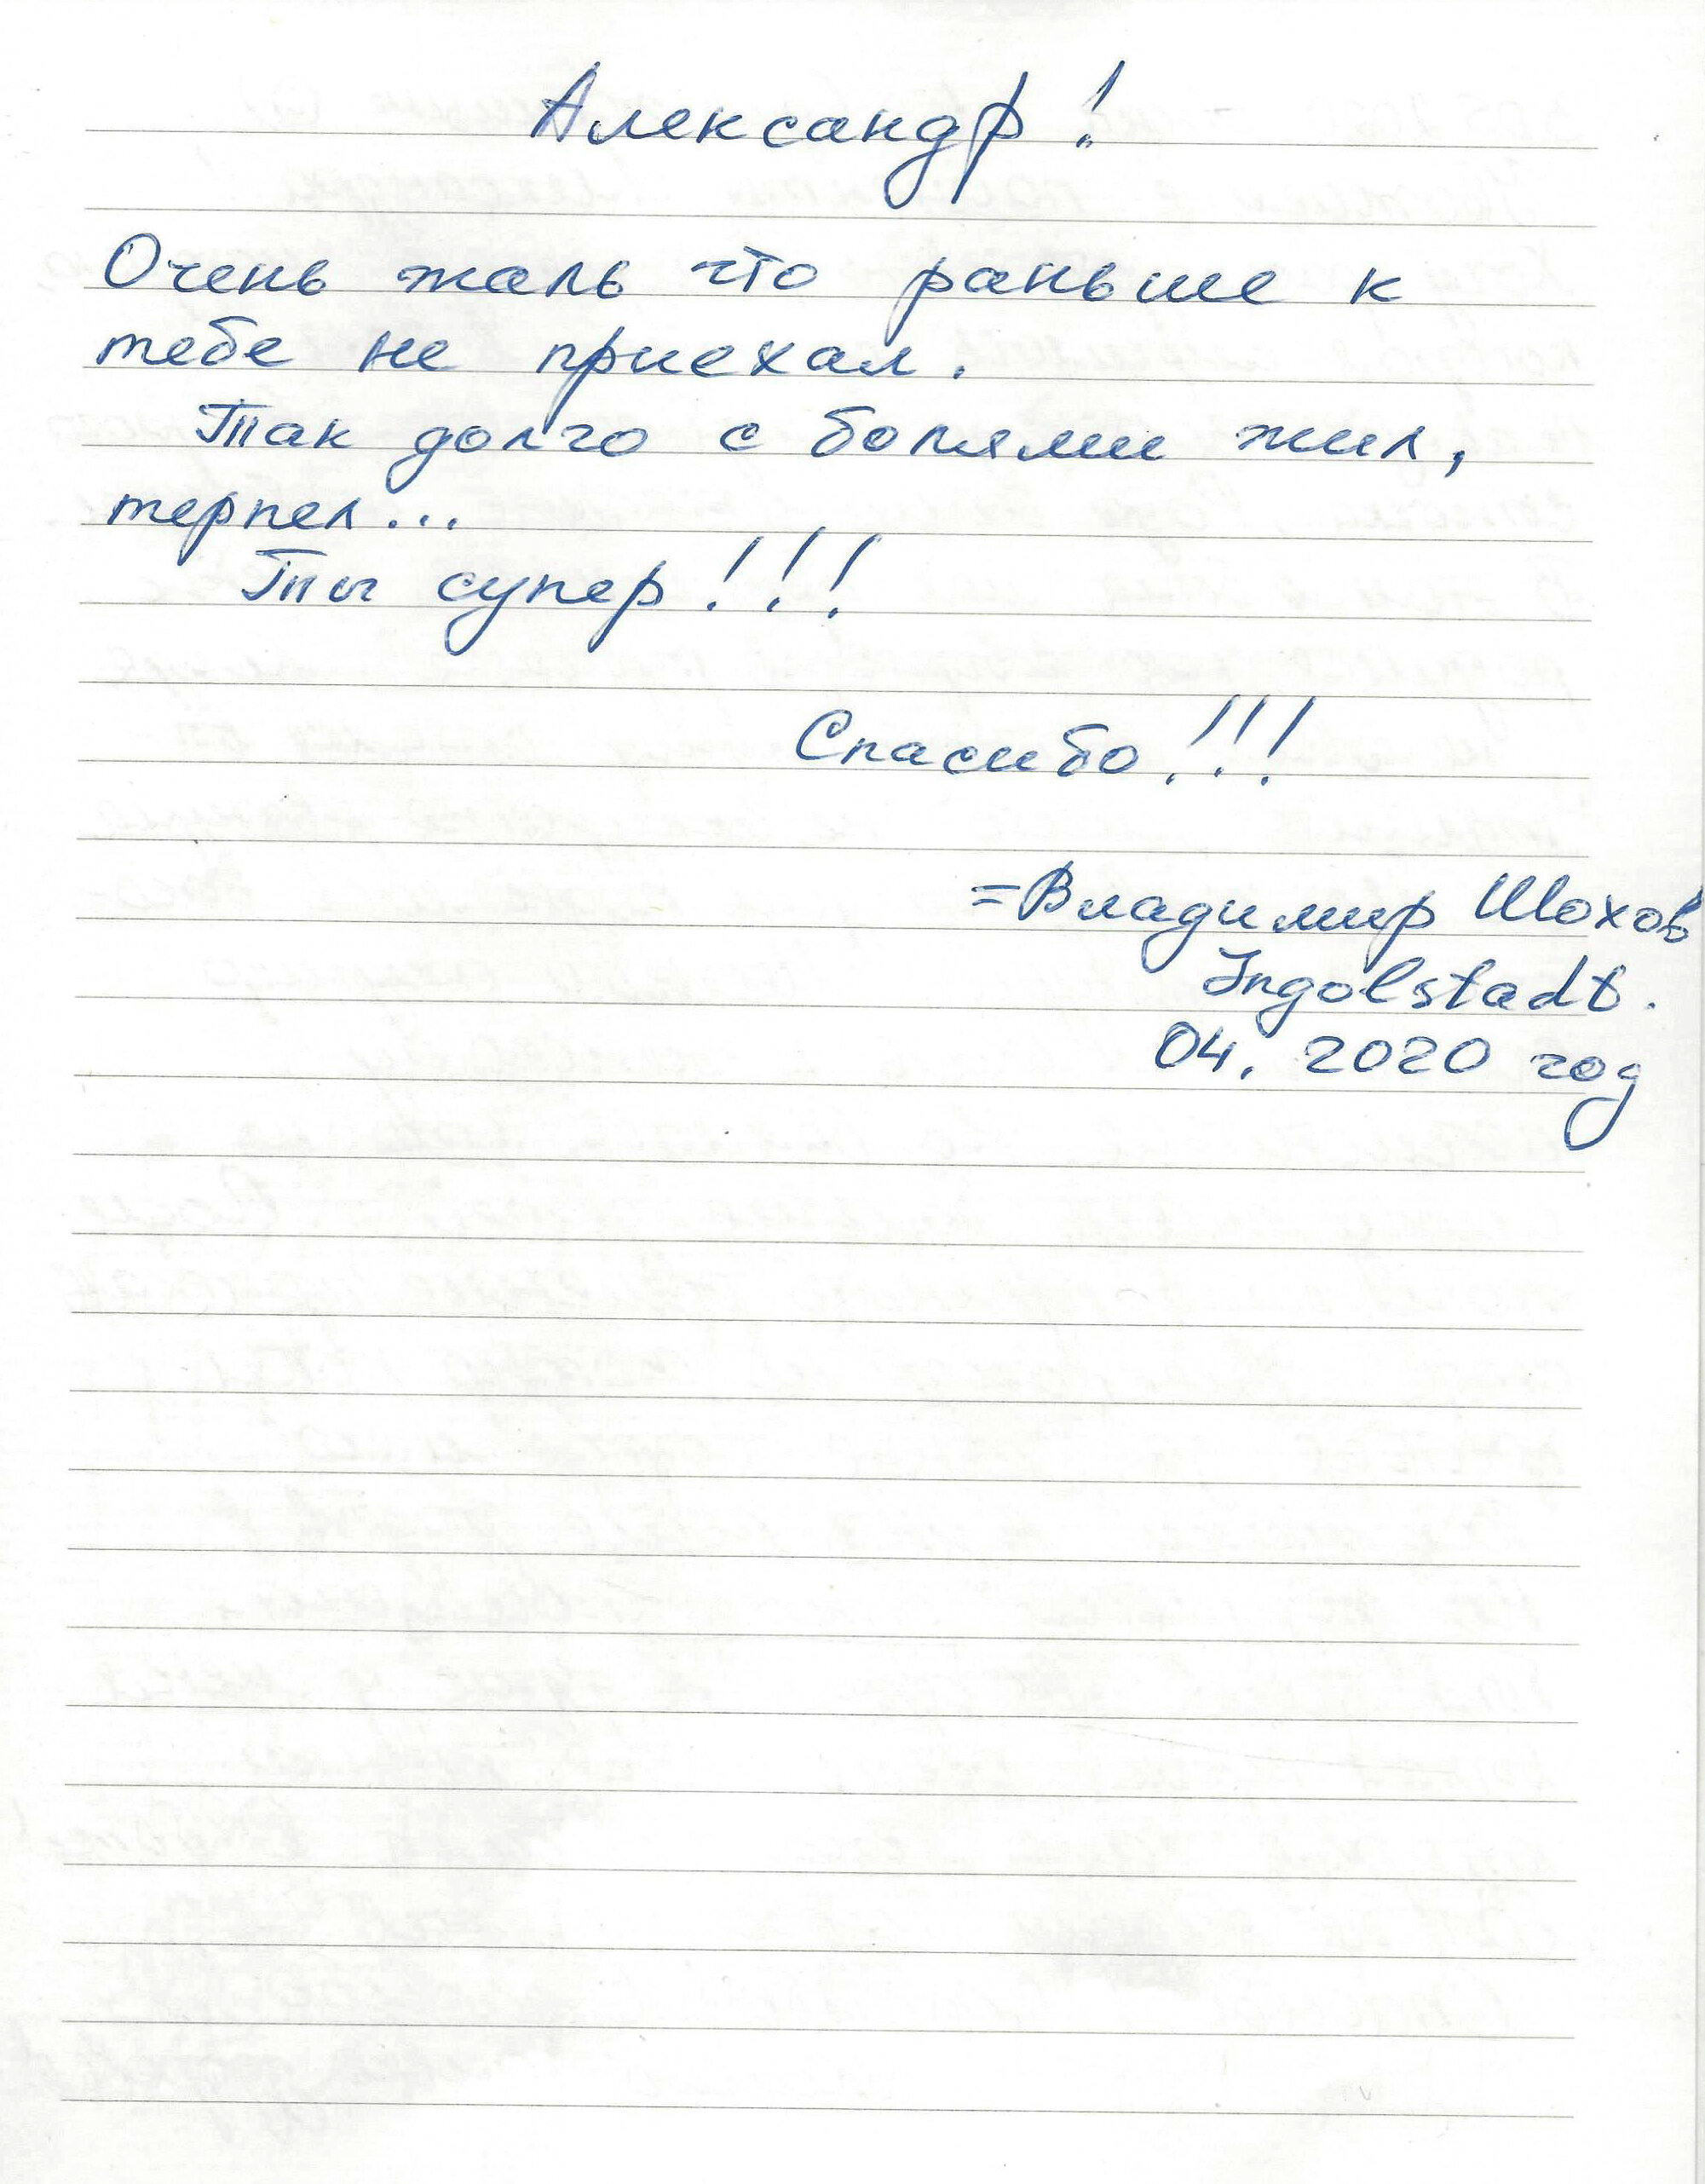 Александр!
Очень жаль что раньше к
тебе не приехал.
Так долго с болями жил,
терпел...
Ты супер!!!
Спасибо!!!
=Владимир Шохов
Ingolstadt.
04. 2020 год